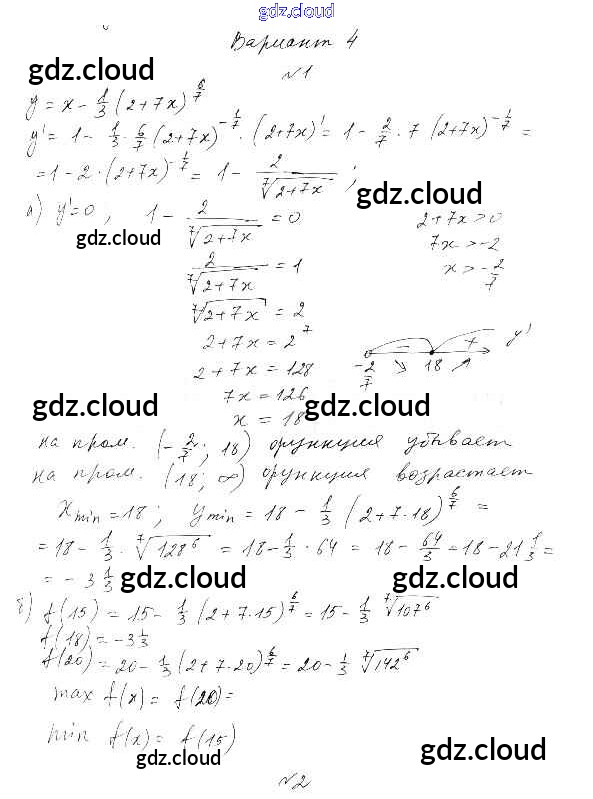 gdz.cloud
Вариант 4
gdz.cloud
№1
y = x - 1/3 (2+7x)^(6/7)
y' = 1 - 1/3 · 6/7 (2+7x)^(-1/7) · (2+7x)' = 1 - 2/7 · 7 (2+7x)^(-1/7) =
= 1 - 2 · (2+7x)^(-1/7) = 1 - 2/⁷√(2+7x) ;
gdz.cloud
а) y'=0 , 1 - 2/⁷√(2+7x) = 0
2+7x > 0
gdz.cloud
7x > -2
2/⁷√(2+7x) = 1
x > -2/7
⁷√(2+7x) = 2
2+7x = 2^7
2+7x = 128
- + y'
-2/7 ↘ 18 ↗
7x = 126
gdz.cloud
gdz.cloud
x = 18
на пром. (-2/7; 18) функция убывает
на пром. (18; ∞) функция возрастает
x min = 18 ; y min = 18 - 1/3 (2+7·18)^(6/7) =
= 18 - 1/3 · ⁷√(128^6) = 18 - 1/3 · 64 = 18 - 64/3 = 18 - 21 1/3 =
= -3 1/3
gdz.cloud
gdz.cloud
б) f(15) = 15 - 1/3 (2+7·15)^(6/7) = 15 - 1/3 ⁷√(107^6)
f(18) = -3 1/3
f(20) = 20 - 1/3 (2+7·20)^(6/7) = 20 - 1/3 ⁷√(142^6)
max f(x) = f(20) =
min f(x) = f(15)
gdz.cloud
gdz.cloud
№2